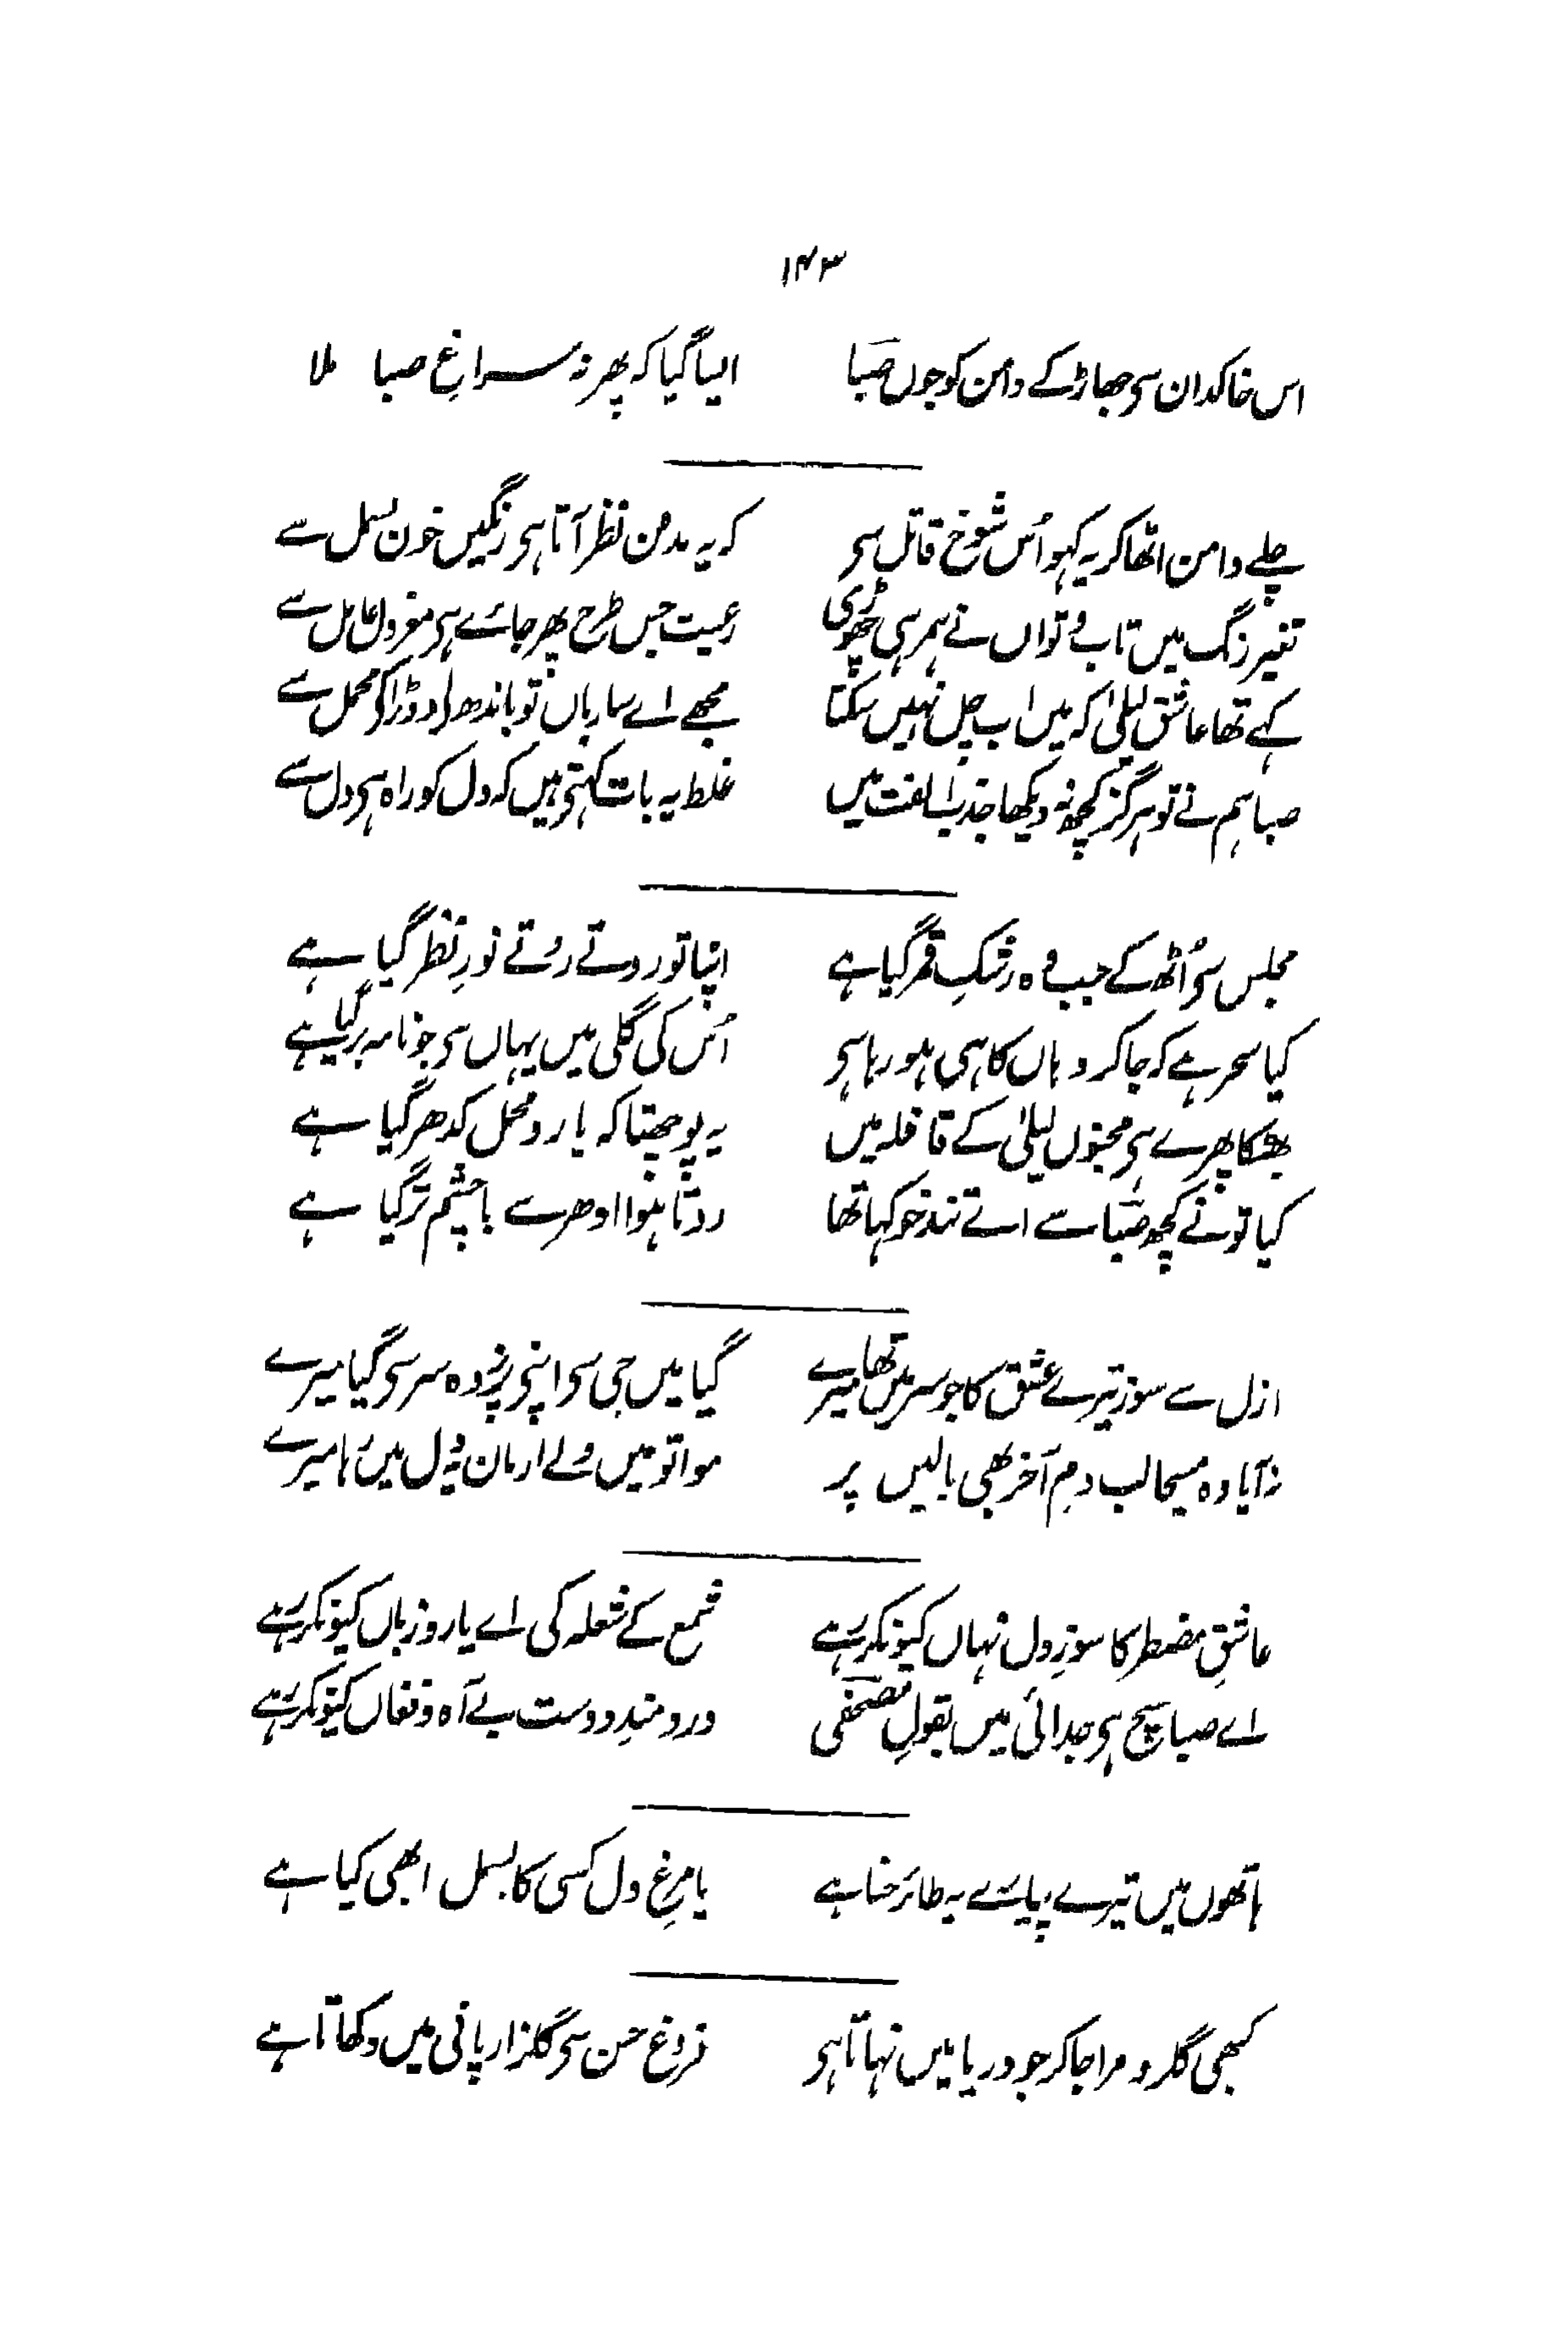 ۱۴۳
اس خاکدان سی جھاڑ کے دامن کو جوں صبا ایسا گیا کہ پھر نہ سراغِ صبا ملا
چلے دامن اٹھا کر یہ کہو اُس شوخ قاتل سی کہ یہ مدمن نظر آتا ہی رنگیں خون بسمل سے
تغیر رنگ میں تاب و تواں نے ہمرہی چھوڑی رعیت جس طرح پھر جائے ہی معزول عامل سے
کہے تھا عاشق لیلیٰ کہ میں اب چل نہیں سکتا مجھے اے سارباں تو باندھ لو دوڑا کر محمل سے
صبا ہم نے تو ہرگز کچھ نہ دیکھا جذب الفت میں غلط یہ بات کہتی ہیں کہ دل کو راہ ہی دل سے
مجلس سی اُٹھ کے جب وہ رشکِ قمر گیا ہے اپنا تو روتے روتے نورِ نظر گیا ہے
کیا سحر ہے کہ جا کر وہاں کا ہی ہو رہا ہی اُس کی گلی میں یہاں سی جو نامہ بر گیا ہے
بھٹکا پھرے ہی مجنوں لیلیٰ کے قافلہ میں یہ پوچھتا کہ یارو محمل کدھر گیا ہے
کیا تو نے کچھ صبا سے اے تندخو کہا تھا روتا ہوا اودھر سے باچشم تر گیا ہے
ازل سے سوز تیرے عشق کا جو سر میں تھا میرے گیا میں جی سی اپنی پر نہ وہ سر سی گیا میرے
نہ آیا وہ مسیحا لب دمِ آخر بھی بالیں پر موا تو میں ولے ارمان یہ دل میں رہا میرے
عاشقِ مضطر کا سوزِ دل نہاں کیونکر رہے شمع کے شعلہ کی اے یارو زباں کیونکر رہے
اے صبا سچ ہی جدائی میں بقولِ مصحفی دردمندِ دوست بے آہ و فغاں کیونکر رہے
ہاتھوں میں تیرے پیارے یہ طائر حنا ہے یا مرغِ دل کسی کا بسمل ابھی کیا ہے
کبھی گلرو مرا جا کر جو دریا میں نہاتا ہی فروغ حسن سی گلزار پانی میں دکھاتا ہے